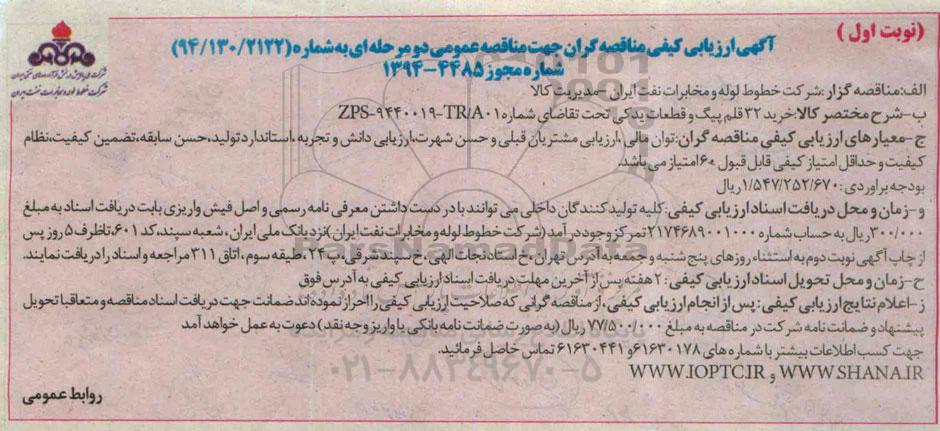 (نوبت اول)
آگهی ارزیابی کیفی مناقصه گران جهت مناقصه عمومی دو مرحله ای به شماره (۹۴/۱۳۰/۲۱۲۲)
شماره مجوز ۴۴۸۵-۱۳۹۴
شرکت ملی پالایش و پخش فرآورده های نفتی ایران
شرکت خطوط لوله و مخابرات نفت ایران
الف: مناقصه گزار: شرکت خطوط لوله و مخابرات نفت ایران -مدیریت کالا
ب-شرح مختصر کالا: خرید ۳۲ قلم پیگ و قطعات یدکی تحت تقاضای شماره ZPS-۹۴۴۰۰۱۹-TR/A۰۱
ج-معیارهای ارزیابی کیفی مناقصه گران: توان مالی، ارزیابی مشتریان قبلی و حسن شهرت، ارزیابی دانش و تجربه، استاندارد تولید، حسن سابقه، تضمین کیفیت، نظام
کیفیت و حداقل امتیاز کیفی قابل قبول ۶۰ امتیاز می باشد.
بودجه برآوردی: ۱/۵۴۷/۲۵۲/۶۷۰ ریال
و-زمان و محل دریافت اسناد ارزیابی کیفی: کلیه تولیدکنندگان داخلی می توانند با در دست داشتن معرفی نامه رسمی و اصل فیش واریزی بابت دریافت اسناد به مبلغ
۳۰۰/۰۰۰ ریال به حساب شماره ۲۱۷۴۶۸۹۰۰۱۰۰۰ تمرکز وجوه درآمد (شرکت خطوط لوله و مخابرات نفت ایران) نزد بانک ملی ایران، شعبه سپند، کد ۶۰۱، تا ظرف ۵ روز پس
از چاپ آگهی نوبت دوم به استثناء روزهای پنج شنبه و جمعه به آدرس تهران، خ استاد نجات الهی، خ سپند شرقی، پ ۲۴، طبقه سوم، اتاق ۳۱۱ مراجعه و اسناد را دریافت نمایند.
ح-زمان و محل تحویل اسناد ارزیابی کیفی: ۲ هفته پس از آخرین مهلت دریافت اسناد ارزیابی کیفی به آدرس فوق
ز-اعلام نتایج ارزیابی کیفی: پس از انجام ارزیابی کیفی، از مناقصه گرانی که صلاحیت ارزیابی کیفی را احراز نموده اند ضمانت جهت دریافت اسناد مناقصه و متعاقبا تحویل
پیشنهاد و ضمانت نامه شرکت در مناقصه به مبلغ ۷۷/۵۰۰/۰۰۰ ریال (به صورت ضمانت نامه بانکی یا واریز وجه نقد) دعوت به عمل خواهد آمد
جهت کسب اطلاعات بیشتر با شماره های ۶۱۶۳۰۱۷۸ و ۶۱۶۳۰۴۴۱ تماس حاصل فرمائید.
WWW.SHANA.IR و WWW.IOPTC.IR
روابط عمومی
ParsNamadData
۰۲۱-۸۸۳۴۹۶۷۰-۵